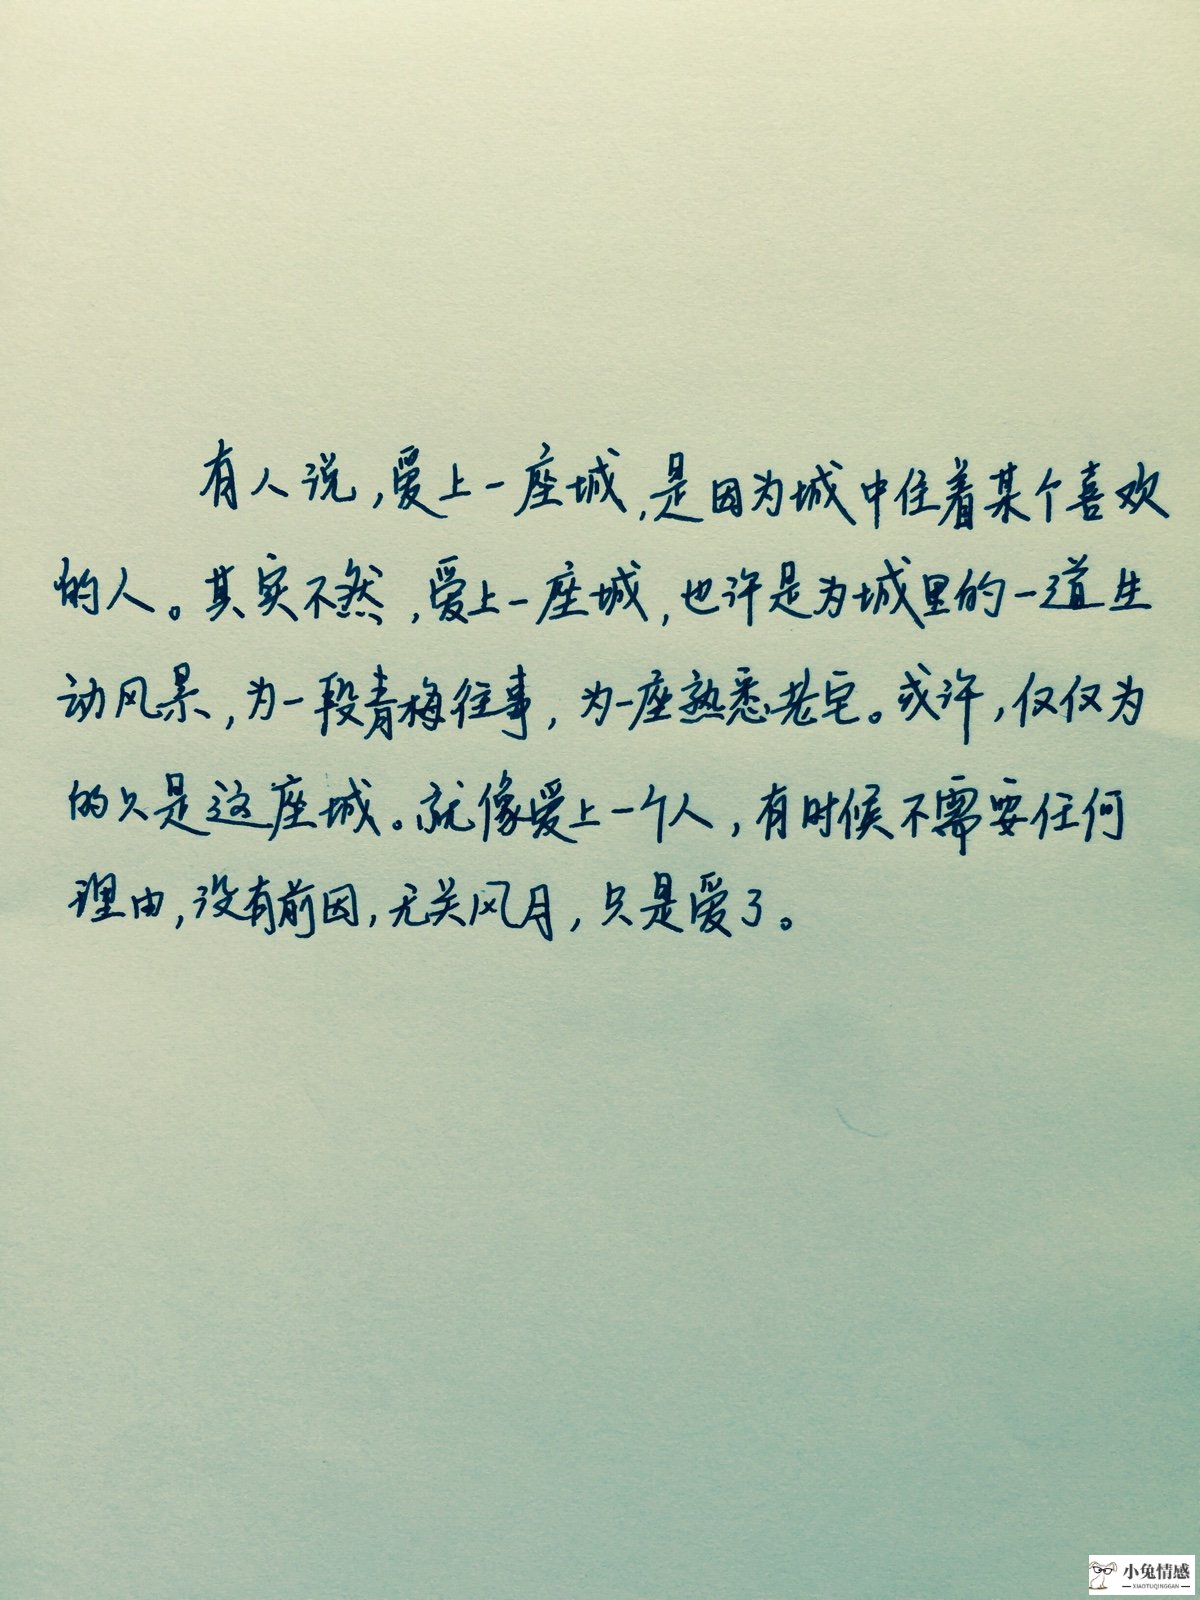 有人说,爱上一座城,是因为城中住着某个喜欢
的人。其实不然,爱上一座城,也许是为城里的一道生
动风景,为一段青梅往事,为一座熟悉老宅。或许,仅仅为
的只是这座城。就像爱上一个人,有时候不需要任何
理由,没有前因,无关风月,只是爱了。
小兔情感
XIAOTUQINGGAN